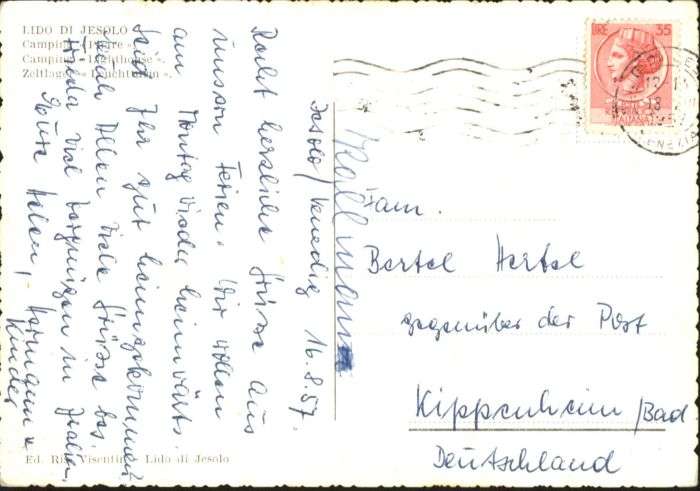 LIDO DI JESOLO
Camping « Faro ».
Camping « Lighthouse ».
Zeltlager « Leuchtturm ».
LIRE 35
Jesolo/Venedig 16.8.57.
Recht herzliche Grüsse aus
unsern Ferien. Wir wollen
am Montag wieder heimwärts.
Seid Ihr gut heimgekommen?
Euch Allen viele Grüsse bes.
Herda viel Vergnügen in Italien,
Eure Helen, Hermann u.
Kinder
Fam.
Bertel Hertel
gegenüber der Post
Kippenheim/Bad
Deutschland
Ed. Visentin Lido di Jesolo